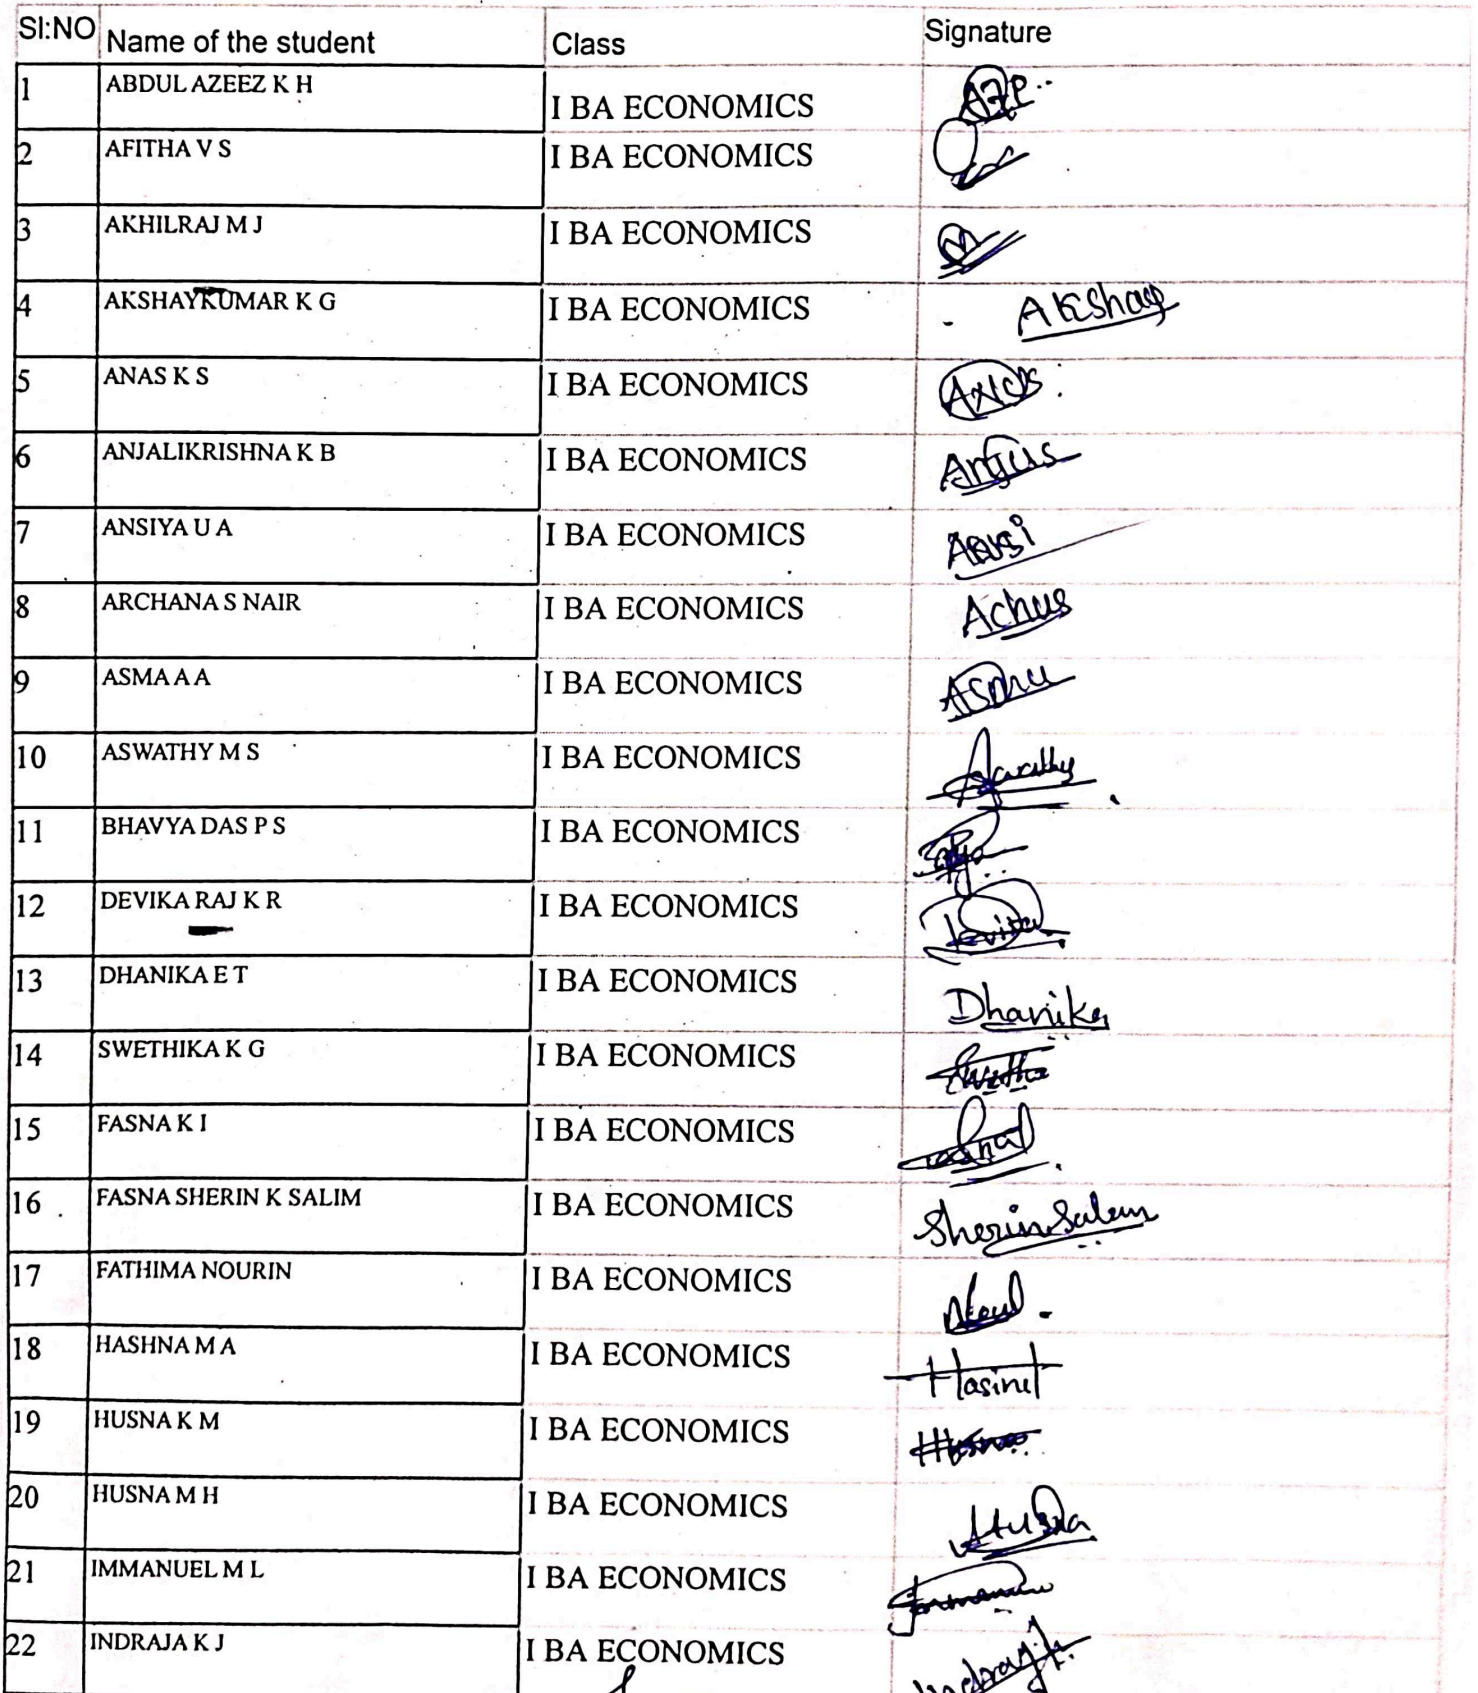 Sl:NO Name of the student Class Signature
1 ABDUL AZEEZ K H I BA ECONOMICS
2 AFITHA V S I BA ECONOMICS
3 AKHILRAJ M J I BA ECONOMICS
4 AKSHAYKUMAR K G I BA ECONOMICS Akshay
5 ANAS K S I BA ECONOMICS Anas
6 ANJALIKRISHNA K B I BA ECONOMICS
7 ANSIYA U A I BA ECONOMICS
8 ARCHANA S NAIR I BA ECONOMICS Achus
9 ASMA A A I BA ECONOMICS Asmu
10 ASWATHY M S I BA ECONOMICS
11 BHAVYA DAS P S I BA ECONOMICS
12 DEVIKA RAJ K R I BA ECONOMICS
13 DHANIKA E T I BA ECONOMICS Dhanika
14 SWETHIKA K G I BA ECONOMICS
15 FASNA K I I BA ECONOMICS
16 FASNA SHERIN K SALIM I BA ECONOMICS
17 FATHIMA NOURIN I BA ECONOMICS
18 HASHNA M A I BA ECONOMICS
19 HUSNA K M I BA ECONOMICS Husna
20 HUSNA M H I BA ECONOMICS Husna
21 IMMANUEL M L I BA ECONOMICS
22 INDRAJA K J I BA ECONOMICS